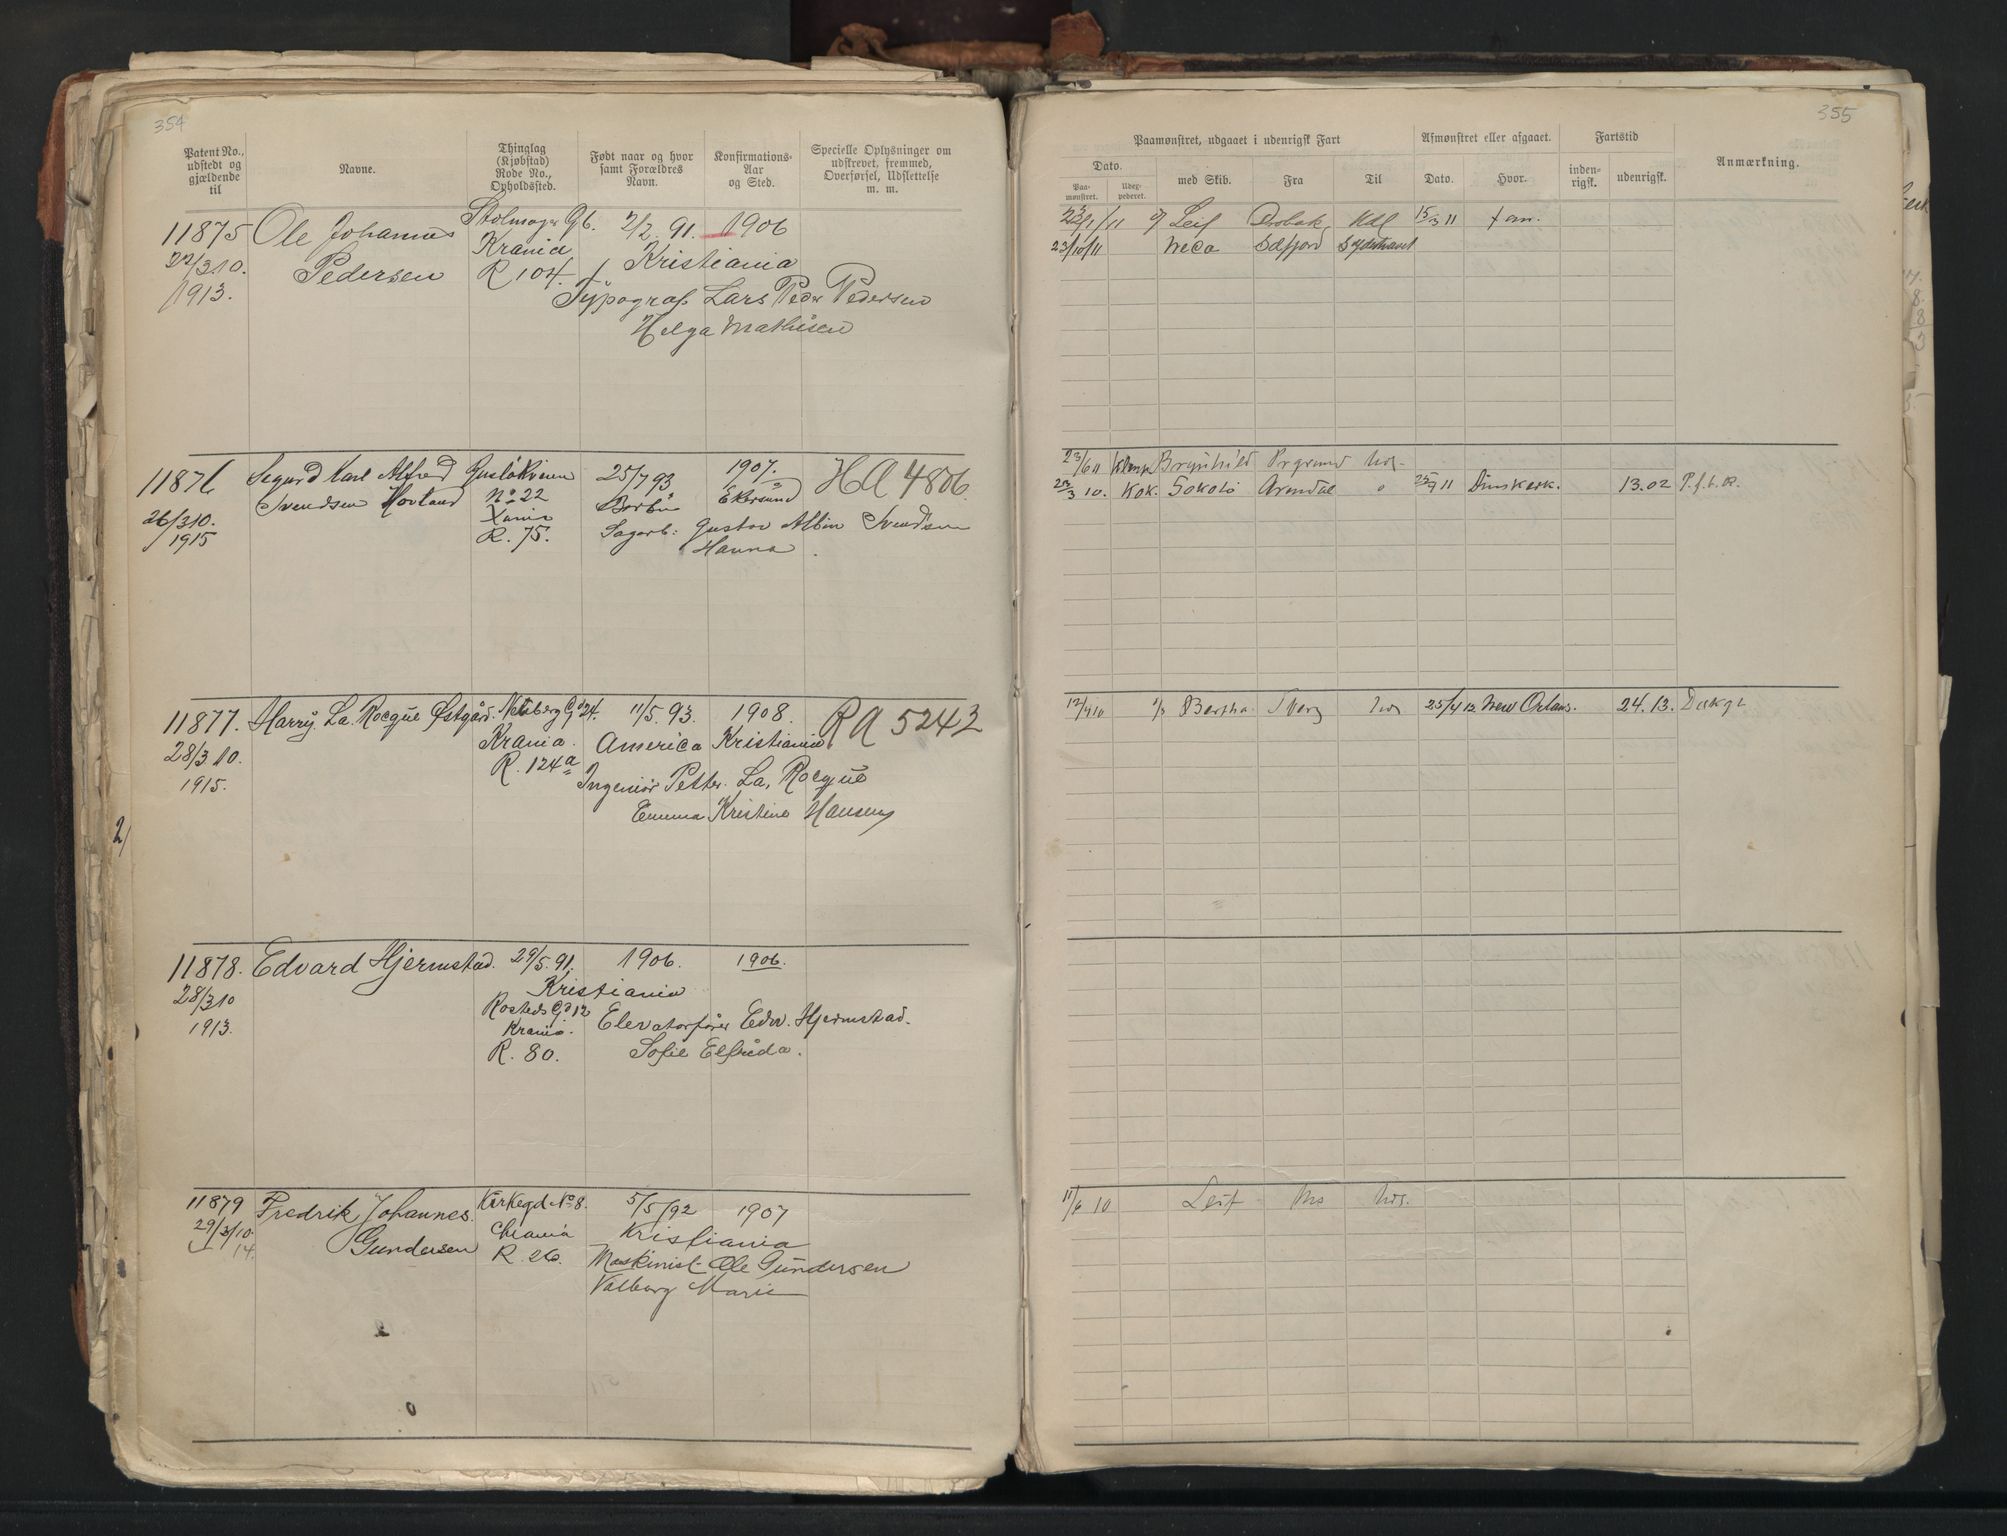 354
Patent No., udstedt og gjældende til
Navne.
Thinglag (Kjøbstad) Rode No., Opholdssted.
Født naar og hvor samt Forældres Navn.
Konfirmations-Aar og Sted.
Specielle Oplysninger om udskrevet, fremmed, Overførsel, Udslettelse m. m.
11875 Ole Johannes 2/2 91. 1906
Krania Kristiania
Pedersen R 104.
1913. Typograf Lars Peder Pedersen
Helga Mathisen
11876 Sigurd Karl Alfred 25/7 93 1907. HA 4806
Svendsen Hovland No 22 Ekersund
26/3 10. Xania
1915 R. 75. Sagarb: Gustav Albin Svendsen
Hanna
11877. Harry. La. Rocque Østgård. 11/5. 93. 1908. RA 5243
Krania. America Kristiania
28/3 10. R. 124a
1915. Ingeniør Petter. La. Rocque
Emma Kristine Hansen
2/
11878. Edvard Hjermstad. 29/5. 91. 1906. 1906.
Kristiania
28/3 10 Rosteds Gd 12
1913. Krania. Elevatorfører Edv. Hjermstad.
R. 80. Sofie Elfrida.
11879 Fredrik Johannes Kirkegd No 8. 5/5/92 1907
29/3/10. Gundersen Chrania Kristiania
14. R. 26. Maskinist Ole Gundersen
Valborg Marie
355
Paamønstret, udgaaet i udenrigsk Fart
Afmønstret eller afgaaet.
Fartstid
Anmærkning.
Dato.
Paamønstret.
Udexpederet.
med Skib.
Fra
Til
Dato.
Hvor.
indenrigsk.
udenrigsk.
Leif Drøbak 15/3 11
23/10/11 Neca
23/6 11 Brynhild
10. Kok. Sokoto Arendal 11 Dunkerk. 13.02
Bertha 25/4 12 New Orleans. 24.13.
11/6 10 Leif